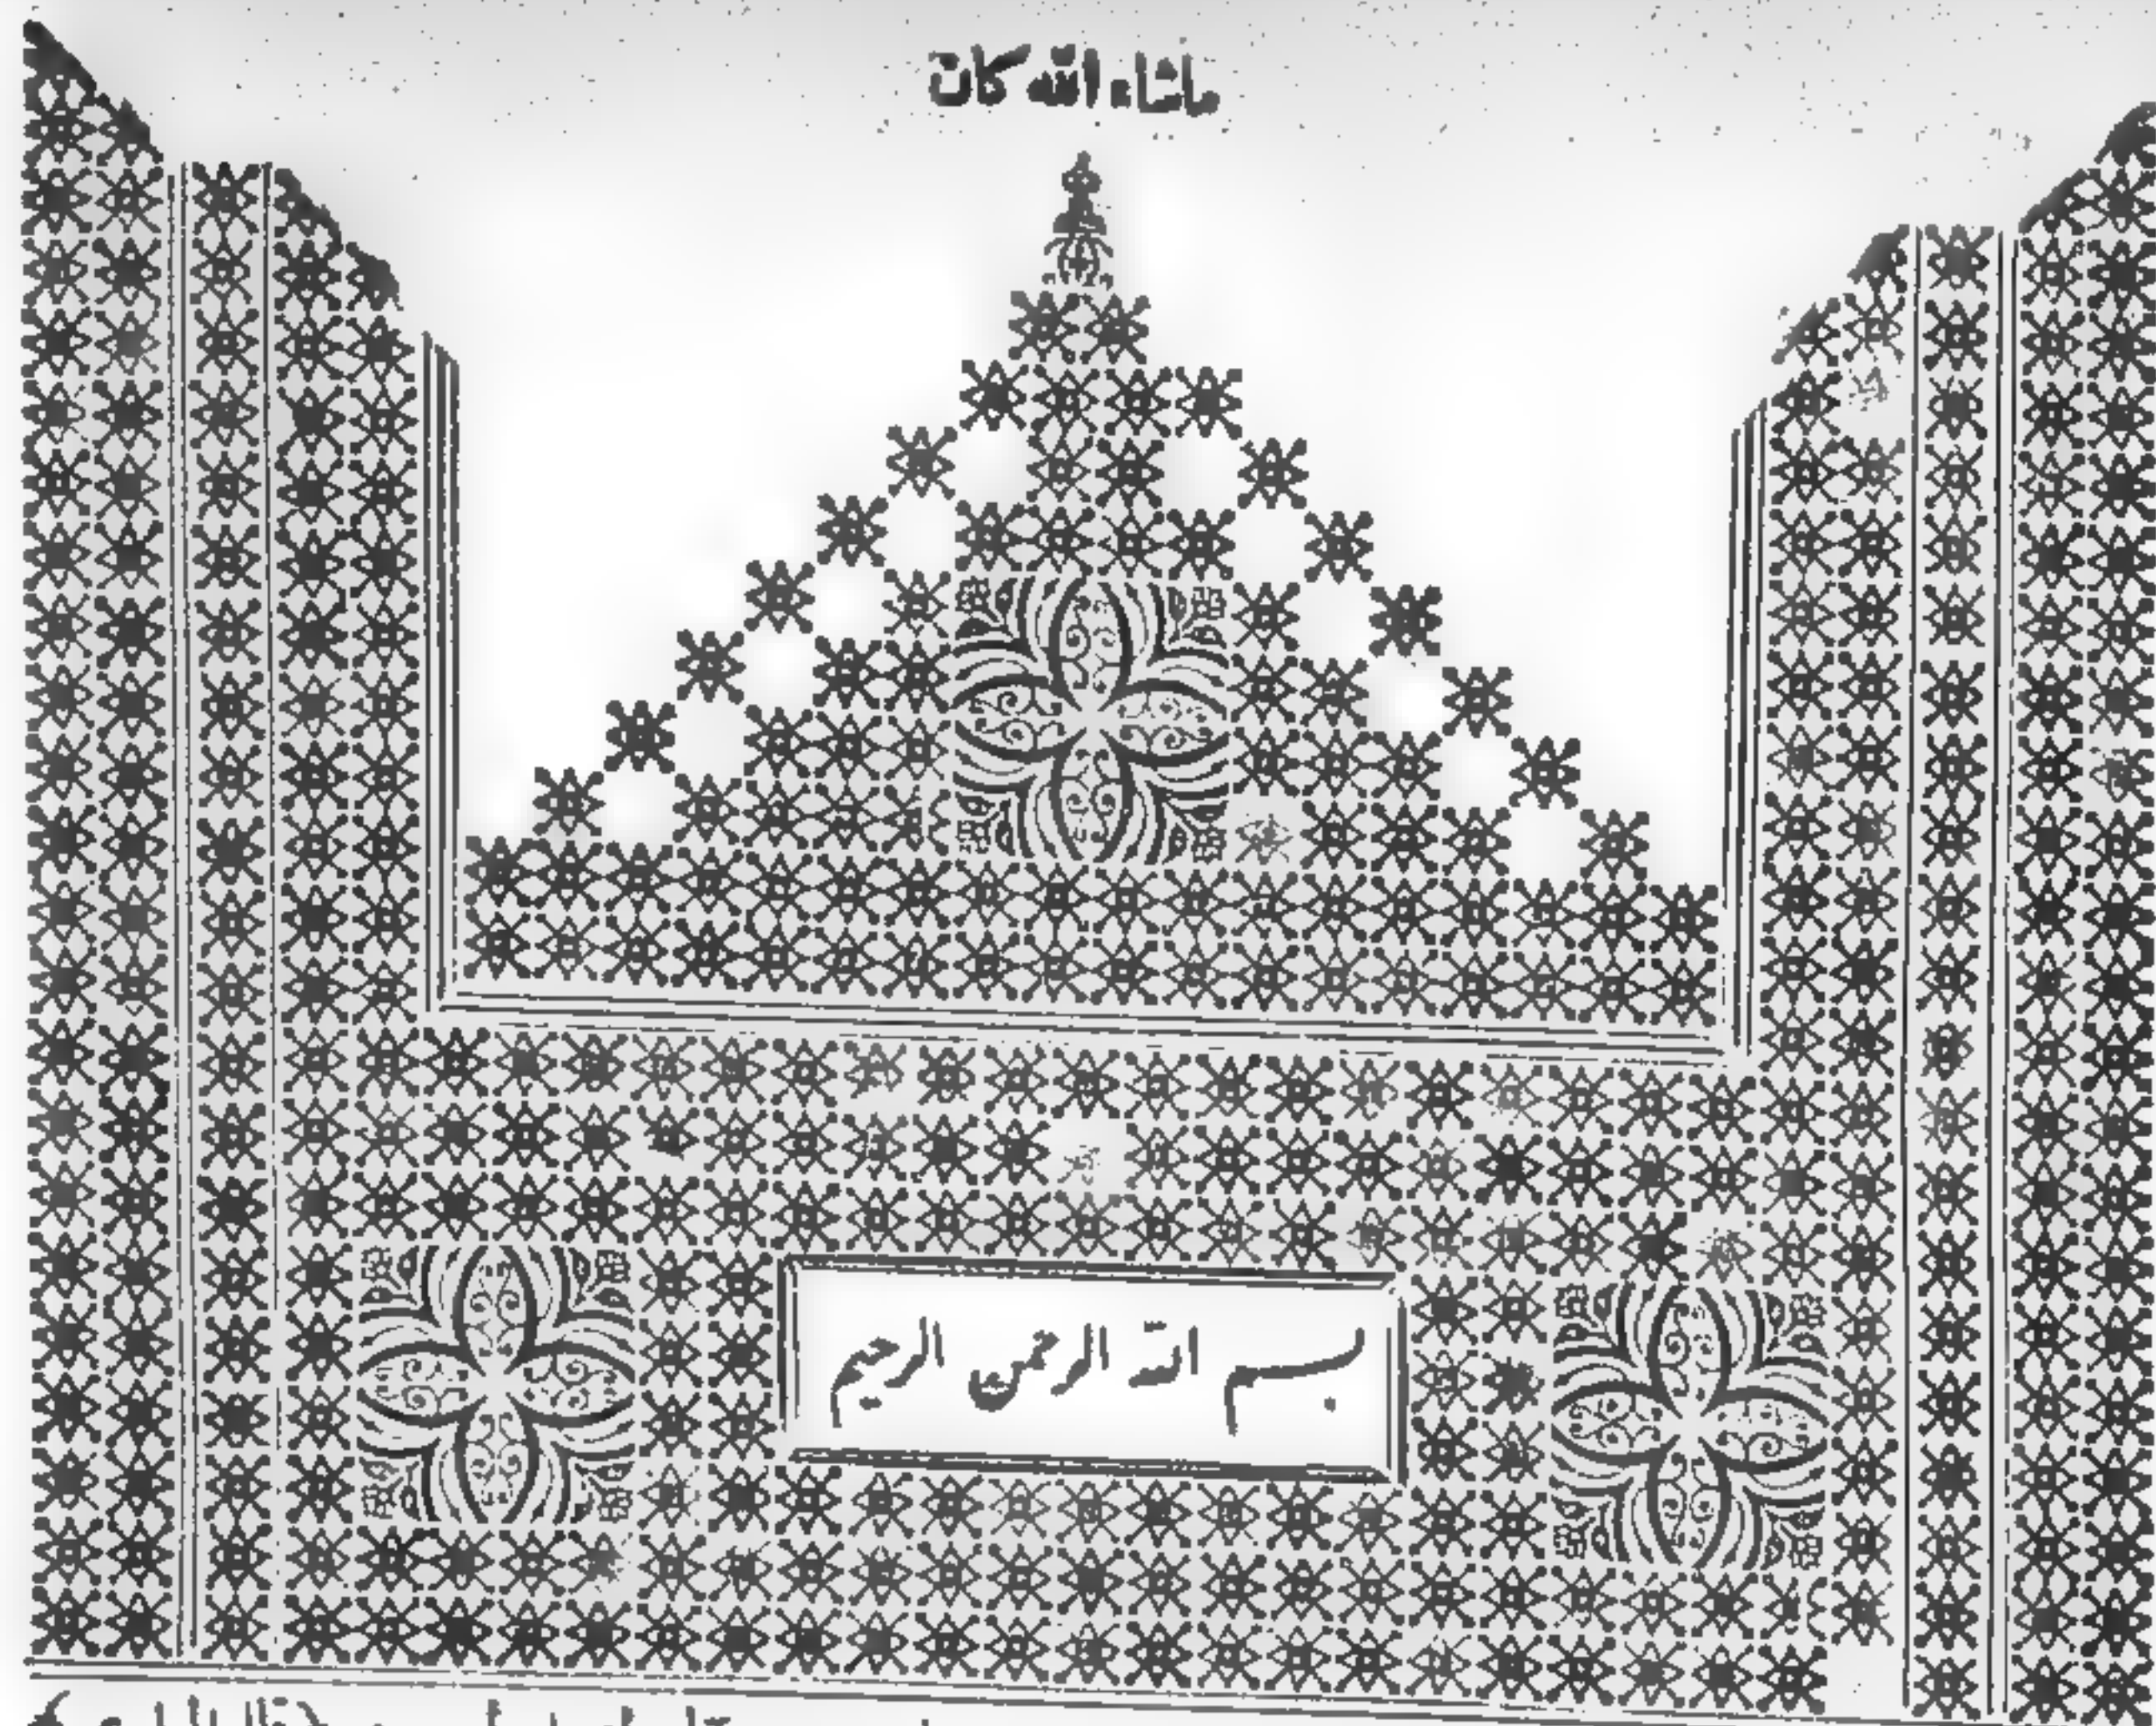 ماشاء الله كان
بسم الله الرحمن الرحيم